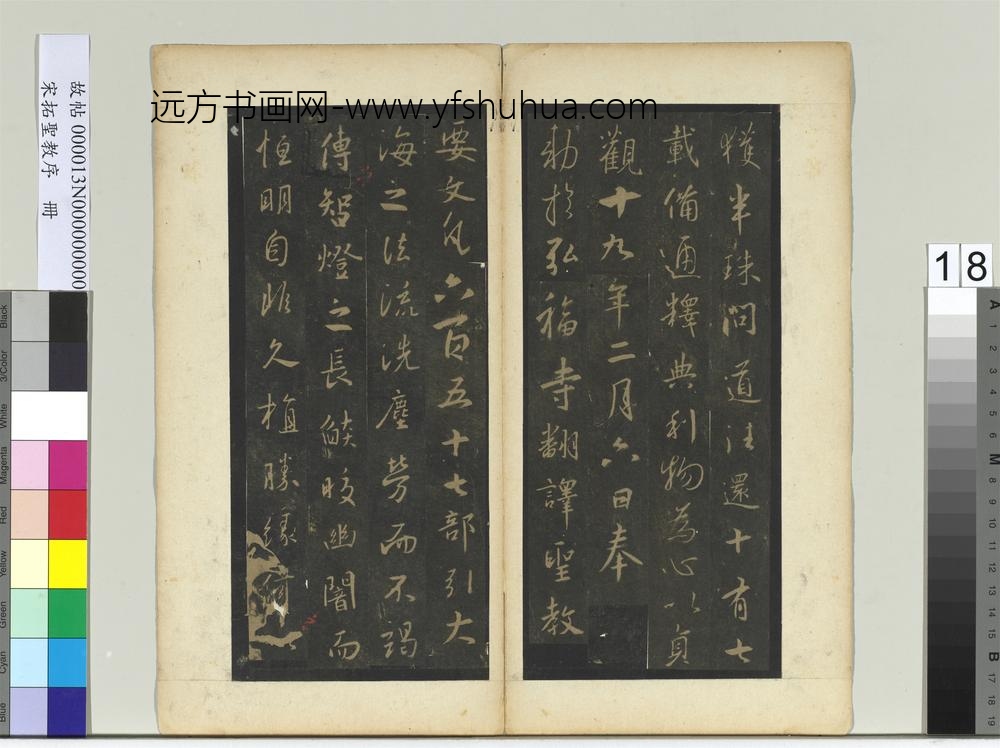 远方书画网-www.yfshuhua.com
獲半珠問道法還十有七
載備通釋典利物為心以貞
觀十九年二月六日奉
勅於弘福寺翻譯聖教
要文凡六百五十七部引大
海之法流洗塵勞而不竭
傳智燈之長焰皎幽闇而
恒明自非久植勝緣何
故帖000013N000000000
宋拓聖教序 冊
18
Black
3/Color
White
Magenta
Red
Yellow
Green
Cyan
Blue
A
1
2
3
4
5
6
M
8
9
10
11
12
13
14
15
B
17
18
19